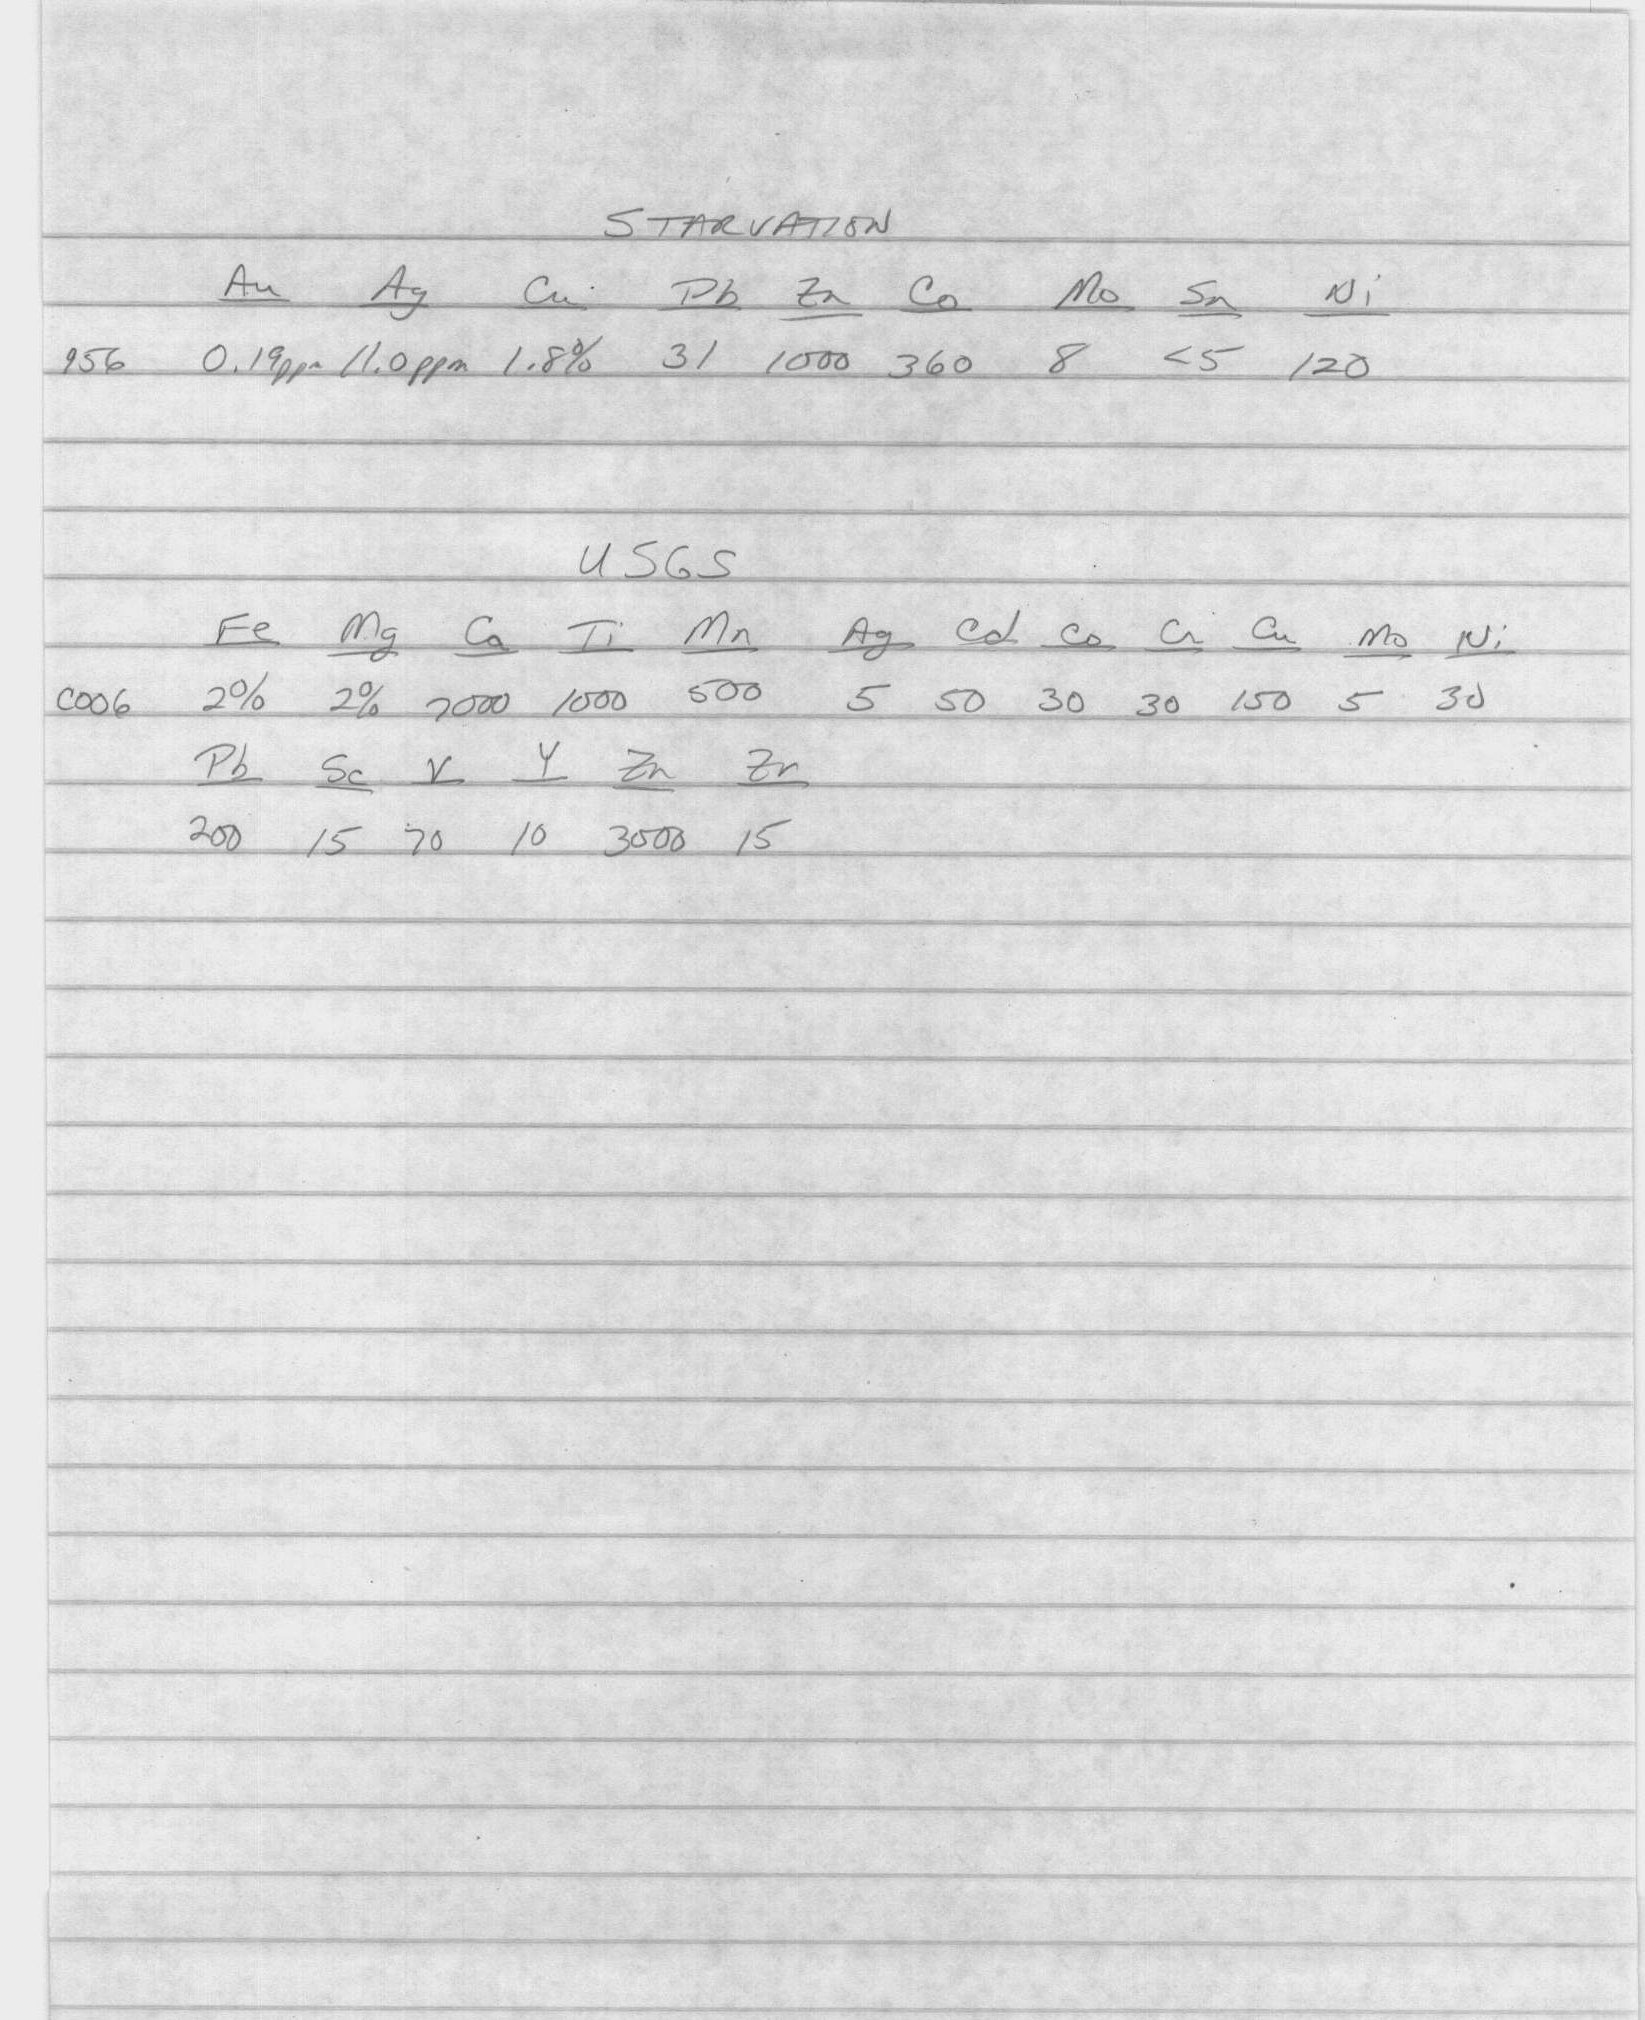 STARVATION
Au Ag Cu Pb Zn Co Mo Sn Ni
956 0.19ppm 11.0ppm 1.8% 31 1000 360 8 <5 120
USGS
Fe Mg Ca Ti Mn Ag Cd Co Cr Cu Mo Ni
C006 2% 2% 7000 1000 500 5 50 30 30 150 5 30
Pb Sc V Y Zn Zr
200 15 70 10 3000 15